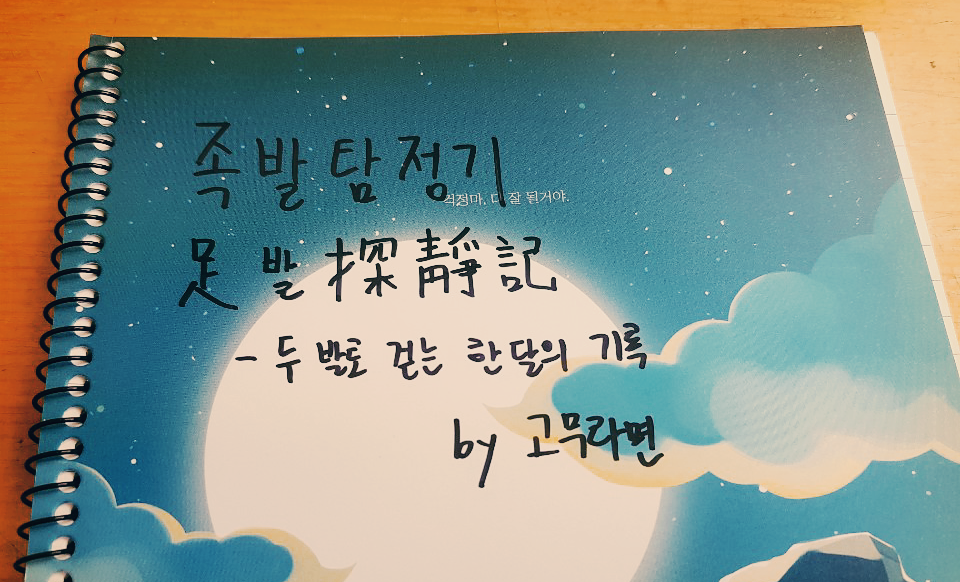 족발탐정기
걱정마, 다 잘 될거야.
足발探靜記
- 두 발로 걷는 한 달의 기록
by 고무라면